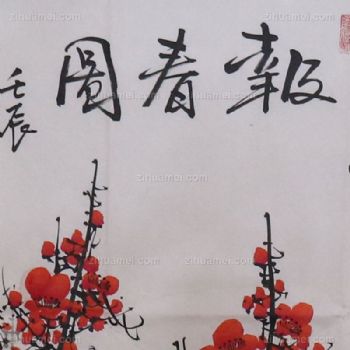 報春圖
壬辰
zihuamei.com
zihuamei.com
zihuamei.com
zihuamei.com
zihuamei.com